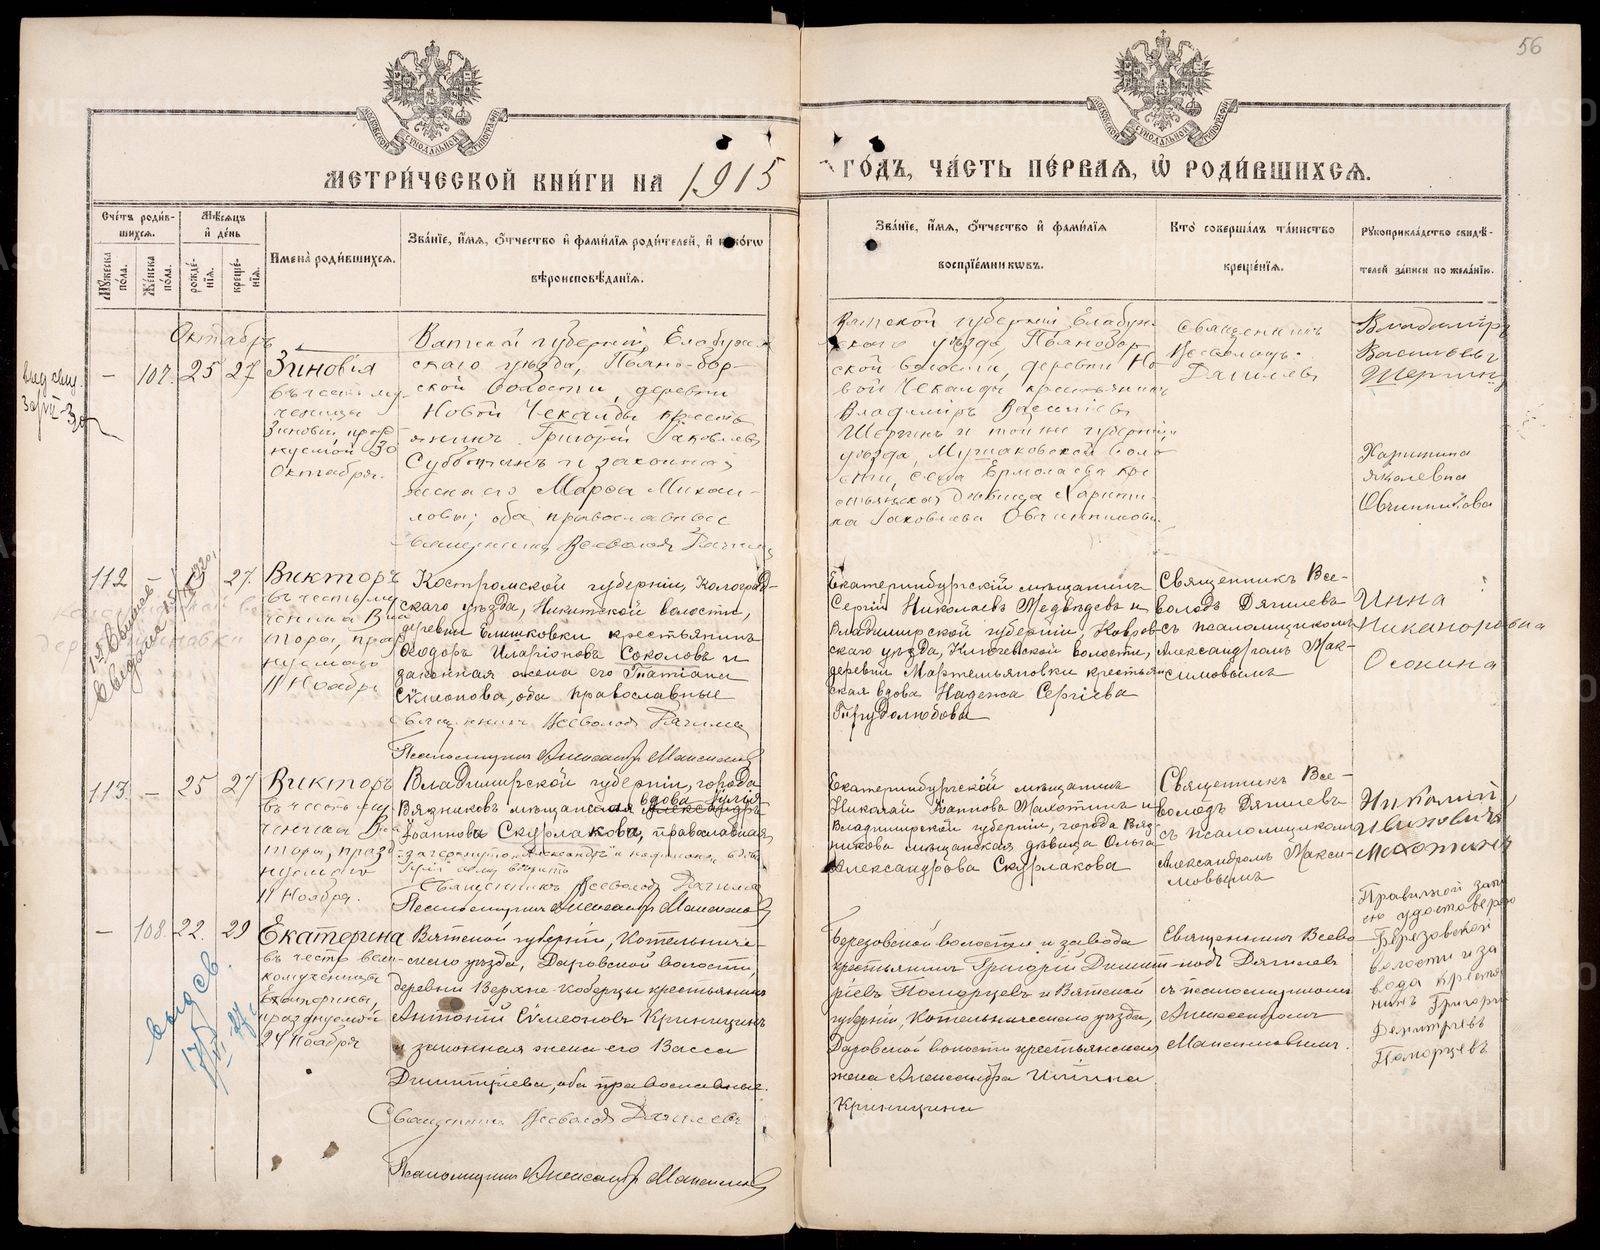 56
МЕТРИ́ЧЕСКОЙ КНИ́ГИ НА 1915
ГО́ДЪ, ЧА́СТЬ ПЕ́РВАѦ, Ѡ҆ РОДИ́ВШИХСѦ.
Сче́тъ роди́в-
шихсѧ.
Мѣ́сѧцъ
и҆ де́нь
Мꙋ́жеска по́ла.
Же́нска по́ла.
рожде́-
нїѧ.
креще́-
нїѧ.
И҆мена̀ роди́вшихсѧ.
Зва́нїе, и҆́мѧ, ѻ҆́тчество и҆ фамі́лїѧ роди́телей, и҆ како́гѡ
вѣроисповѣ́данїѧ.
Зва́нїе, и҆́мѧ, ѻ҆́тчество и҆ фамі́лїѧ
воспрїе́мникѡвъ.
Кто̀ соверша́лъ та́инство
креще́нїѧ.
Рꙋкоприкла́дство свидѣ́-
телей за́писи по жела́нїю.
Октябрь
— 107. 25 27
Зиновія
въ честь му-
ченицы
Зиновіи, празд-
нуемой 30
Октября.
Вятской губерніи, Елабуж-
скаго уѣзда, Пьяно-бор-
ской волости, деревни
Новой Чекалды кресть-
янинъ Григорій Іаковлевъ
Субботинъ и законная
жена его Марѳа Михаи-
лова; оба православные
Священникъ Всеволодъ Дягилевъ
Вятской губерніи Елабуж-
скаго уѣзда, Пьянобор-
ской волости, деревни Но-
вой Чекалды крестьянинъ
Владиміръ Василіевъ
Шергинъ и той же губерніи
уѣзда, Мушаковской воло-
сти, села Ермолаева кре-
стьянская дѣвица Харити-
на Іаковлева Овчинникова.
Священникъ
Всеволодъ
Дягилевъ
Владиміръ
Васильевъ
Шергинъ
Харитина
Яковлевна
Овчинникова
112 — 15 27.
Викторъ
въ честь му-
ченика Вик-
тора, празд-
нуемаго
11 Ноября
Костромской губерніи, Кологрив-
скаго уѣзда, Никитской волости,
деревни Елшковки крестьянинъ
Ѳеодоръ Иларіоновъ Соколовъ и
законная жена его Татіана
Сѵмеонова, оба православные
Священникъ Всеволодъ Дягилевъ
Псаломщикъ Александръ Максимовъ
Екатеринбургскій мѣщанинъ
Сергій Николаевъ Медвѣдевъ и
Владимірской губерніи, Ковров-
скаго уѣзда, Клюшевской волости,
деревни Мартемьяновки крестьян-
ская вдова Надежа Сергіева
Трудолюбова
Священникъ Все-
володъ Дягилевъ
съ псаломщикомъ
Александромъ Мак-
симовымъ
Инна
Никаноровна
Осокина
113. — 25 27
Викторъ
въ честь му-
ченика Вик-
тора, празд-
нуемаго
11 Ноября.
Владимірской губерніи, города
Вязниковъ мѣщанская вдова Юлія
Іоаннова Скурлакова, православная
Священникъ Всеволодъ Дягилевъ
Псаломщикъ Александръ Максимовъ
Екатеринбургскій мѣщанинъ
Николай Іоанновъ Махотинъ и
Владимірской губерніи, города Вяз-
никова мѣщанская дѣвица Ольга
Александрова Скурлакова
Священникъ Все-
володъ Дягилевъ
съ псаломщикомъ
Александромъ Макси-
мовымъ
Николай
Ивановичъ
Махотинъ
— 108. 22. 29
Екатерина
въ честь вели-
комученицы
Екатерины,
празднуемой
24 Ноября
Вятской губерніи, Котельниче-
скаго уѣзда, Даровской волости,
деревни Верхне-Коберцы крестьянинъ
Антоній Сѵмеоновъ Криницинъ
и законная жена его Васса
Димитріева, оба православные.
Священникъ Всеволодъ Дягилевъ
Псаломщикъ Александръ Максимовъ
Березовской волости и завода
крестьянинъ Григорій Димит-
ріевъ Поморцевъ и Вятской
губерніи, Котельническаго уѣзда,
Даровской волости крестьянская
жена Александра Ильина
Криницина
Священникъ Всево-
лодъ Дягилевъ
съ псаломщикомъ
Александромъ
Максимовымъ.
Правильной запи-
сью удостоверяю
Березовской
волости и за
вода крестья
нинъ Григорій
Дмитріевъ
Поморцевъ